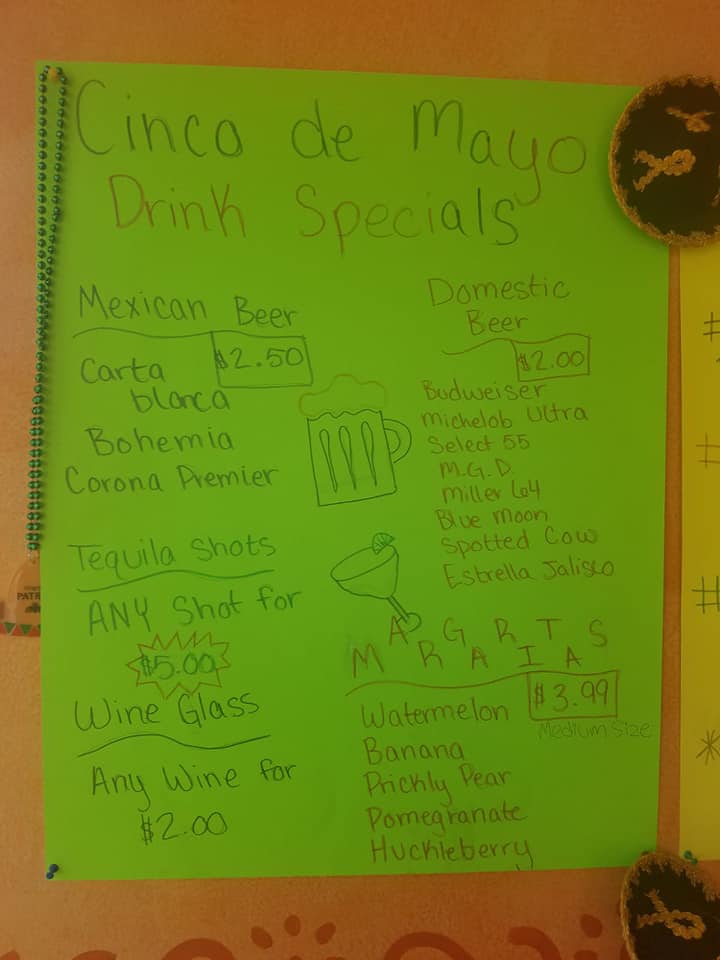 Cinco de Mayo
Drink Specials
Mexican Beer
$2.50
Carta
blanca
Bohemia
Corona Premier
Tequila Shots
ANY Shot for
$5.00
Wine Glass
Any Wine for
$2.00
Domestic
Beer
$2.00
Budweiser
Michelob Ultra
Select 55
M.G.D.
Miller 64
Blue Moon
Spotted Cow
Estrella Jalisco
MARGARITAS
$3.99
Medium Size
Watermelon
Banana
Prickly Pear
Pomegranate
Huckleberry
PATR
#
#
#
*